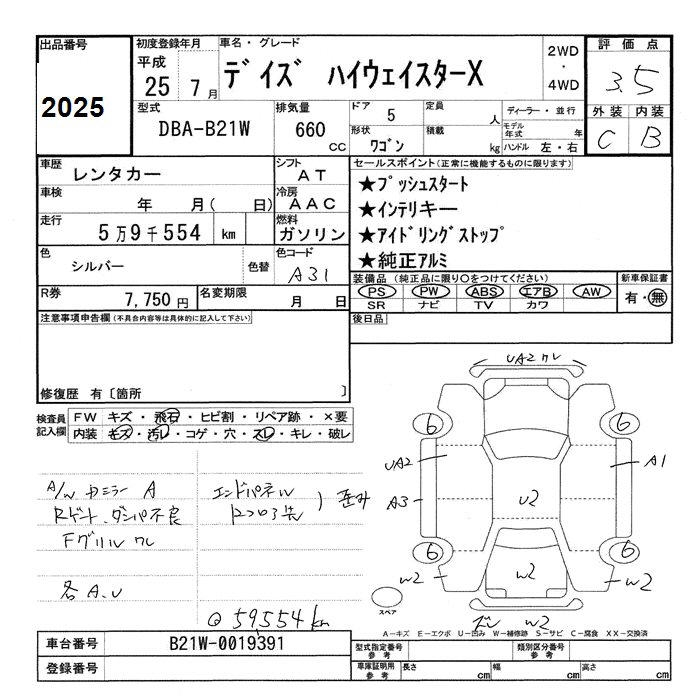 出品番号
2025
初度登録年月
平成
25 7月
車名・グレード
デイズ ハイウェイスターX
2WD
・
4WD
評価点
3.5
外装 内装
C B
型式
DBA-B21W
排気量
660
CC
ドア 5
形状
ワゴン
定員 人
積載 kg
ディーラー・並行
モデル年式 年
ハンドル 左・右
車歴
レンタカー
シフト
AT
車検
年 月( 日)
冷房
AAC
走行
5万9千554 km
燃料
ガソリン
色
シルバー
色替
色コード
A31
R券
7,750円
名変期限
月 日
セールスポイント(正常に機能するものに限ります)
★プッシュスタート
★インテリキー
★アイドリングストップ
★純正アルミ
装備品 (純正品に限り○をつけてください)
PS PW ABS エアB AW
SR ナビ TV カワ
新車保証書
有・無
後日品
注意事項申告欄(不具合内容等は具体的に記入して下さい)
修復歴 有〔箇所 〕
検査員
記入欄
FW キズ・飛石・ヒビ割・リペア跡・×要
内装 キズ・汚レ・コゲ・穴・スレ・キレ・破レ
A
Fグリルワレ
各A.U
エンドパネル
歪み
59,554km
UA2 ワレ
6
6
UA2
A1
A3
U2
6
6
W2
W2
W2
W2
スペア
A-キズ E-エクボ U-凹み W-補修跡 S-サビ C-腐食 XX-交換済
車台番号
B21W-0019391
登録番号
型式指定番号
参考
類別区分番号
参考
車庫証明用
参考
長さ cm 幅 cm 高さ cm